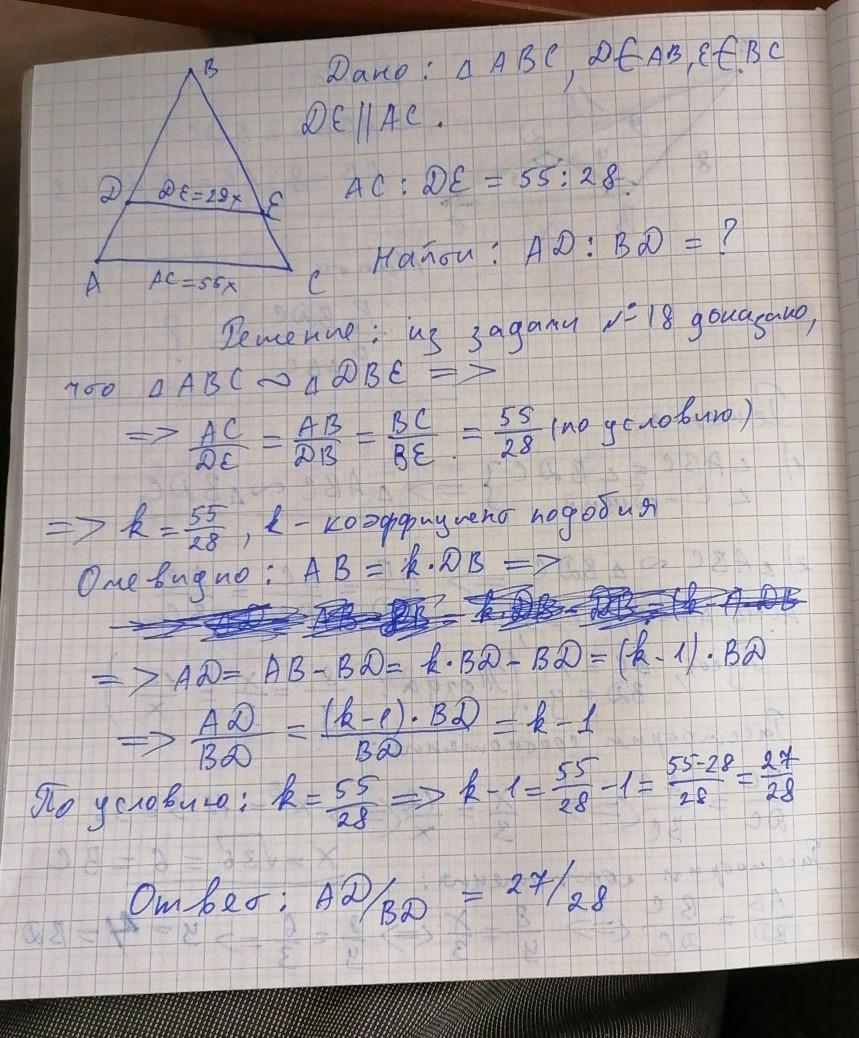 B
Дано: △ABC, D∈AB, E∈BC
DE||AC.
D DE=28x E
AC : DE = 55:28.
A AC=55x C
Найти: AD : BD = ?
Решение: из задачи №18 доказано,
что △ABC ∾ △DBE =>
=> AC/DE = AB/DB = BC/BE = 55/28 (по условию)
=> k = 55/28, k - коэффициент подобия
Очевидно: AB = k·DB =>
=> AD = AB - BD = k·BD - BD = (k-1)·BD
=> AD/BD = (k-1)·BD/BD = k-1
По условию: k = 55/28 => k-1 = 55/28 - 1 = 55-28/28 = 27/28
Ответ: AD/BD = 27/28